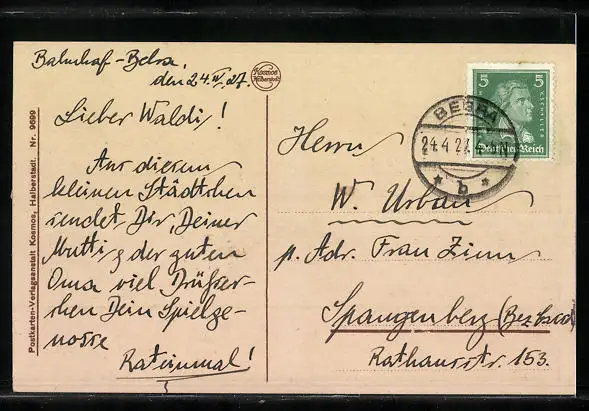 Bahnhof-Bebra,
den 24.IV.27.
Lieber Waldi!
Aus diesem
kleinen Städtchen
sendet Dir, Deiner
Mutti & der guten
Oma viel Grüßer-
chen Dein Spielge-
nosse
Rateinmal!
Kosmos
Halberstadt
Postkarten-Verlagsanstalt Kosmos, Halberstadt. Nr. 9699
5 5
F.v.SCHILLER
Deutsches Reich
BEBRA
24.4.27.
* b *
Herrn
W. Urban
p. Adr. Frau Zinn
Spangenberg (Bez
Rathausstr. 153.